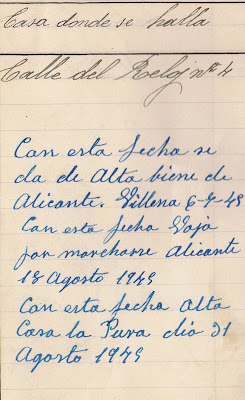 Casa donde se halla
Calle del Reloj nº 4
Con esta fecha se
da de Alta biene de
Alicante. Villena 6-7-49
Con esta fecha Vaja
por marcharse Alicante
18 Agosto 1949
Con esta fecha Alta
Casa la Pura dia 31
Agosto 1949